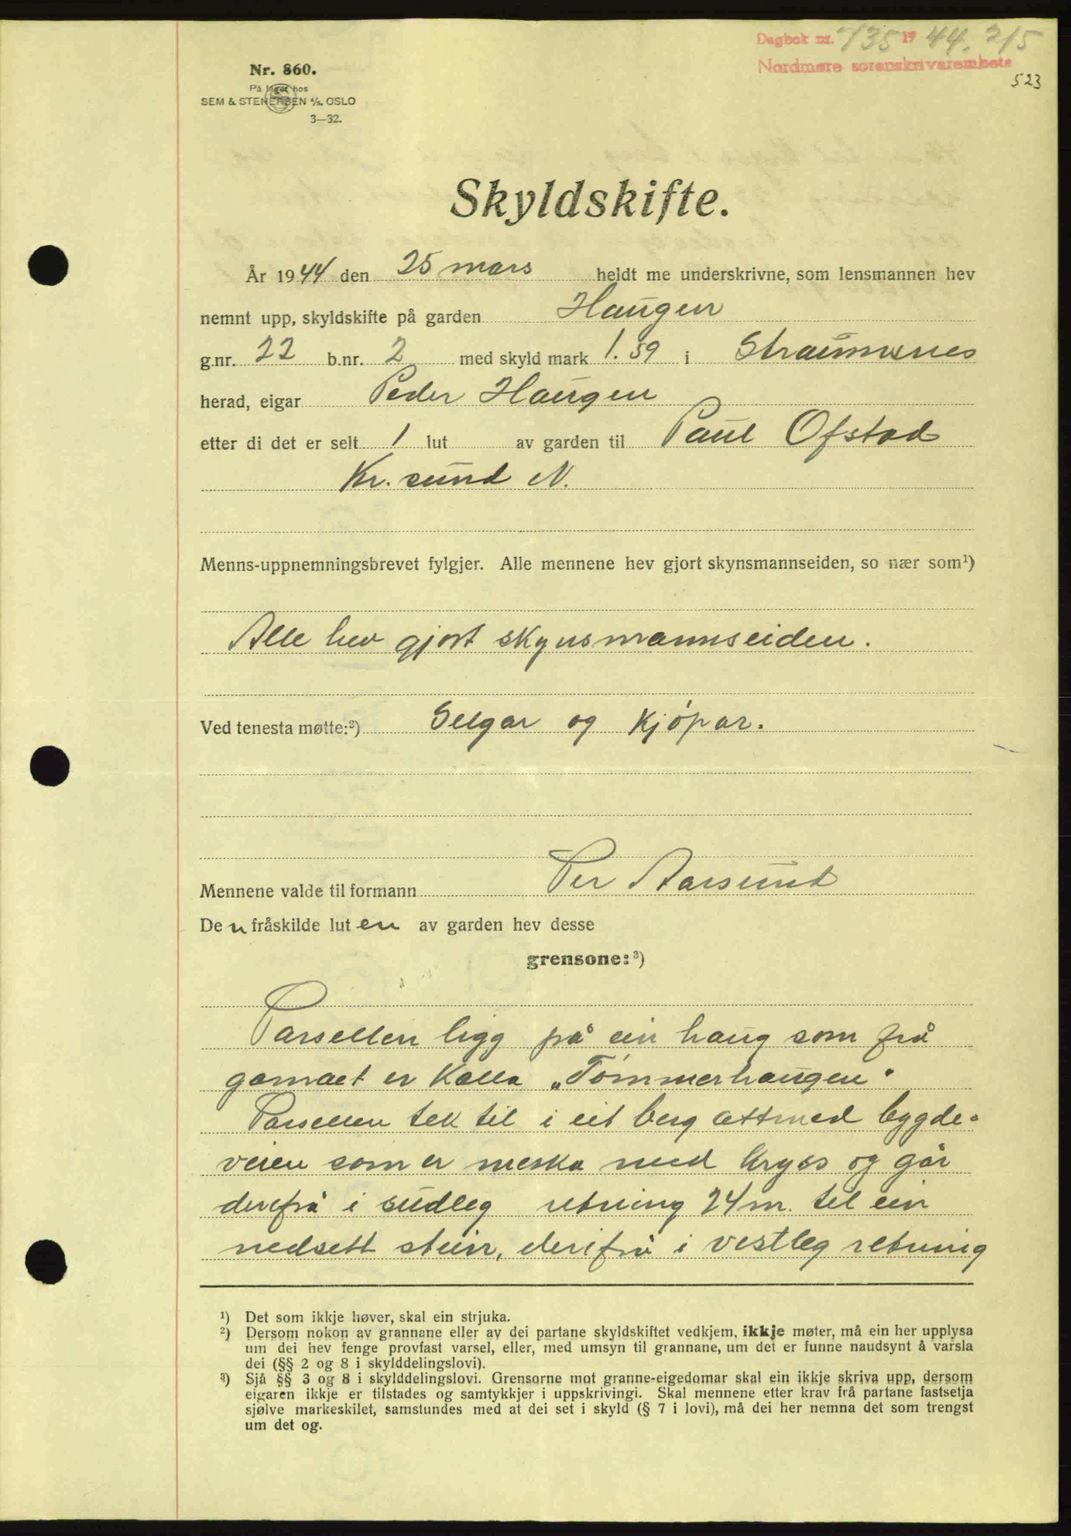 Dagbok nr. 735 19 44. 2/5
Nordmøre sorenskrivarembete
523
Nr. 860.
På lager hos
SEM & STENERSEN A/S, OSLO
3—32.
Skyldskifte.
År 1944 den 25 mars heldt me underskrivne, som lensmannen hev
nemnt upp, skyldskifte på garden Haugen
g.nr. 22 b.nr. 2 med skyld mark 1.59 i Straumsnes
herad, eigar Peder Haugen
etter di det er selt 1 lut av garden til Paul Ofstad
Kr. sund N.
Menns-uppnemningsbrevet fylgjer. Alle mennene hev gjort skynsmannseiden, so nær som¹)
Alle hev gjort skynsmannseiden.
Ved tenesta møtte:²) Selgar og Kjöpar.
Mennene valde til formann Per Aarsund
Den fråskilde luten av garden hev desse
grensone:³)
Parsellen ligg på ein haug som frå
gamalt er Kalla „Tømmerhaugen"
Parsellen tek til i eit berg attmed bygde-
veien som er merka med Kryss og går
derifrå i sudleg retning 24 m. til ein
nedsett stein, derifrå i vestleg retning
¹) Det som ikkje høver, skal ein strjuka.
²) Dersom nokon av grannane eller av dei partane skyldskiftet vedkjem, ikkje møter, må ein her upplysa
um dei hev fenge provfast varsel, eller, med umsyn til grannane, um det er funne naudsynt å varsla
dei (§§ 2 og 8 i skylddelingslovi).
³) Sjå §§ 3 og 8 i skylddelingslovi. Grensorne mot granne-eigedomar skal ein ikkje skriva upp, dersom
eigaren ikkje er tilstades og samtykkjer i uppskrivingi. Skal mennene etter krav frå partane fastsetja
sjølve markeskilet, samstundes med at dei set i skyld (§ 7 i lovi), må dei her nemna det som trengst
um det og.